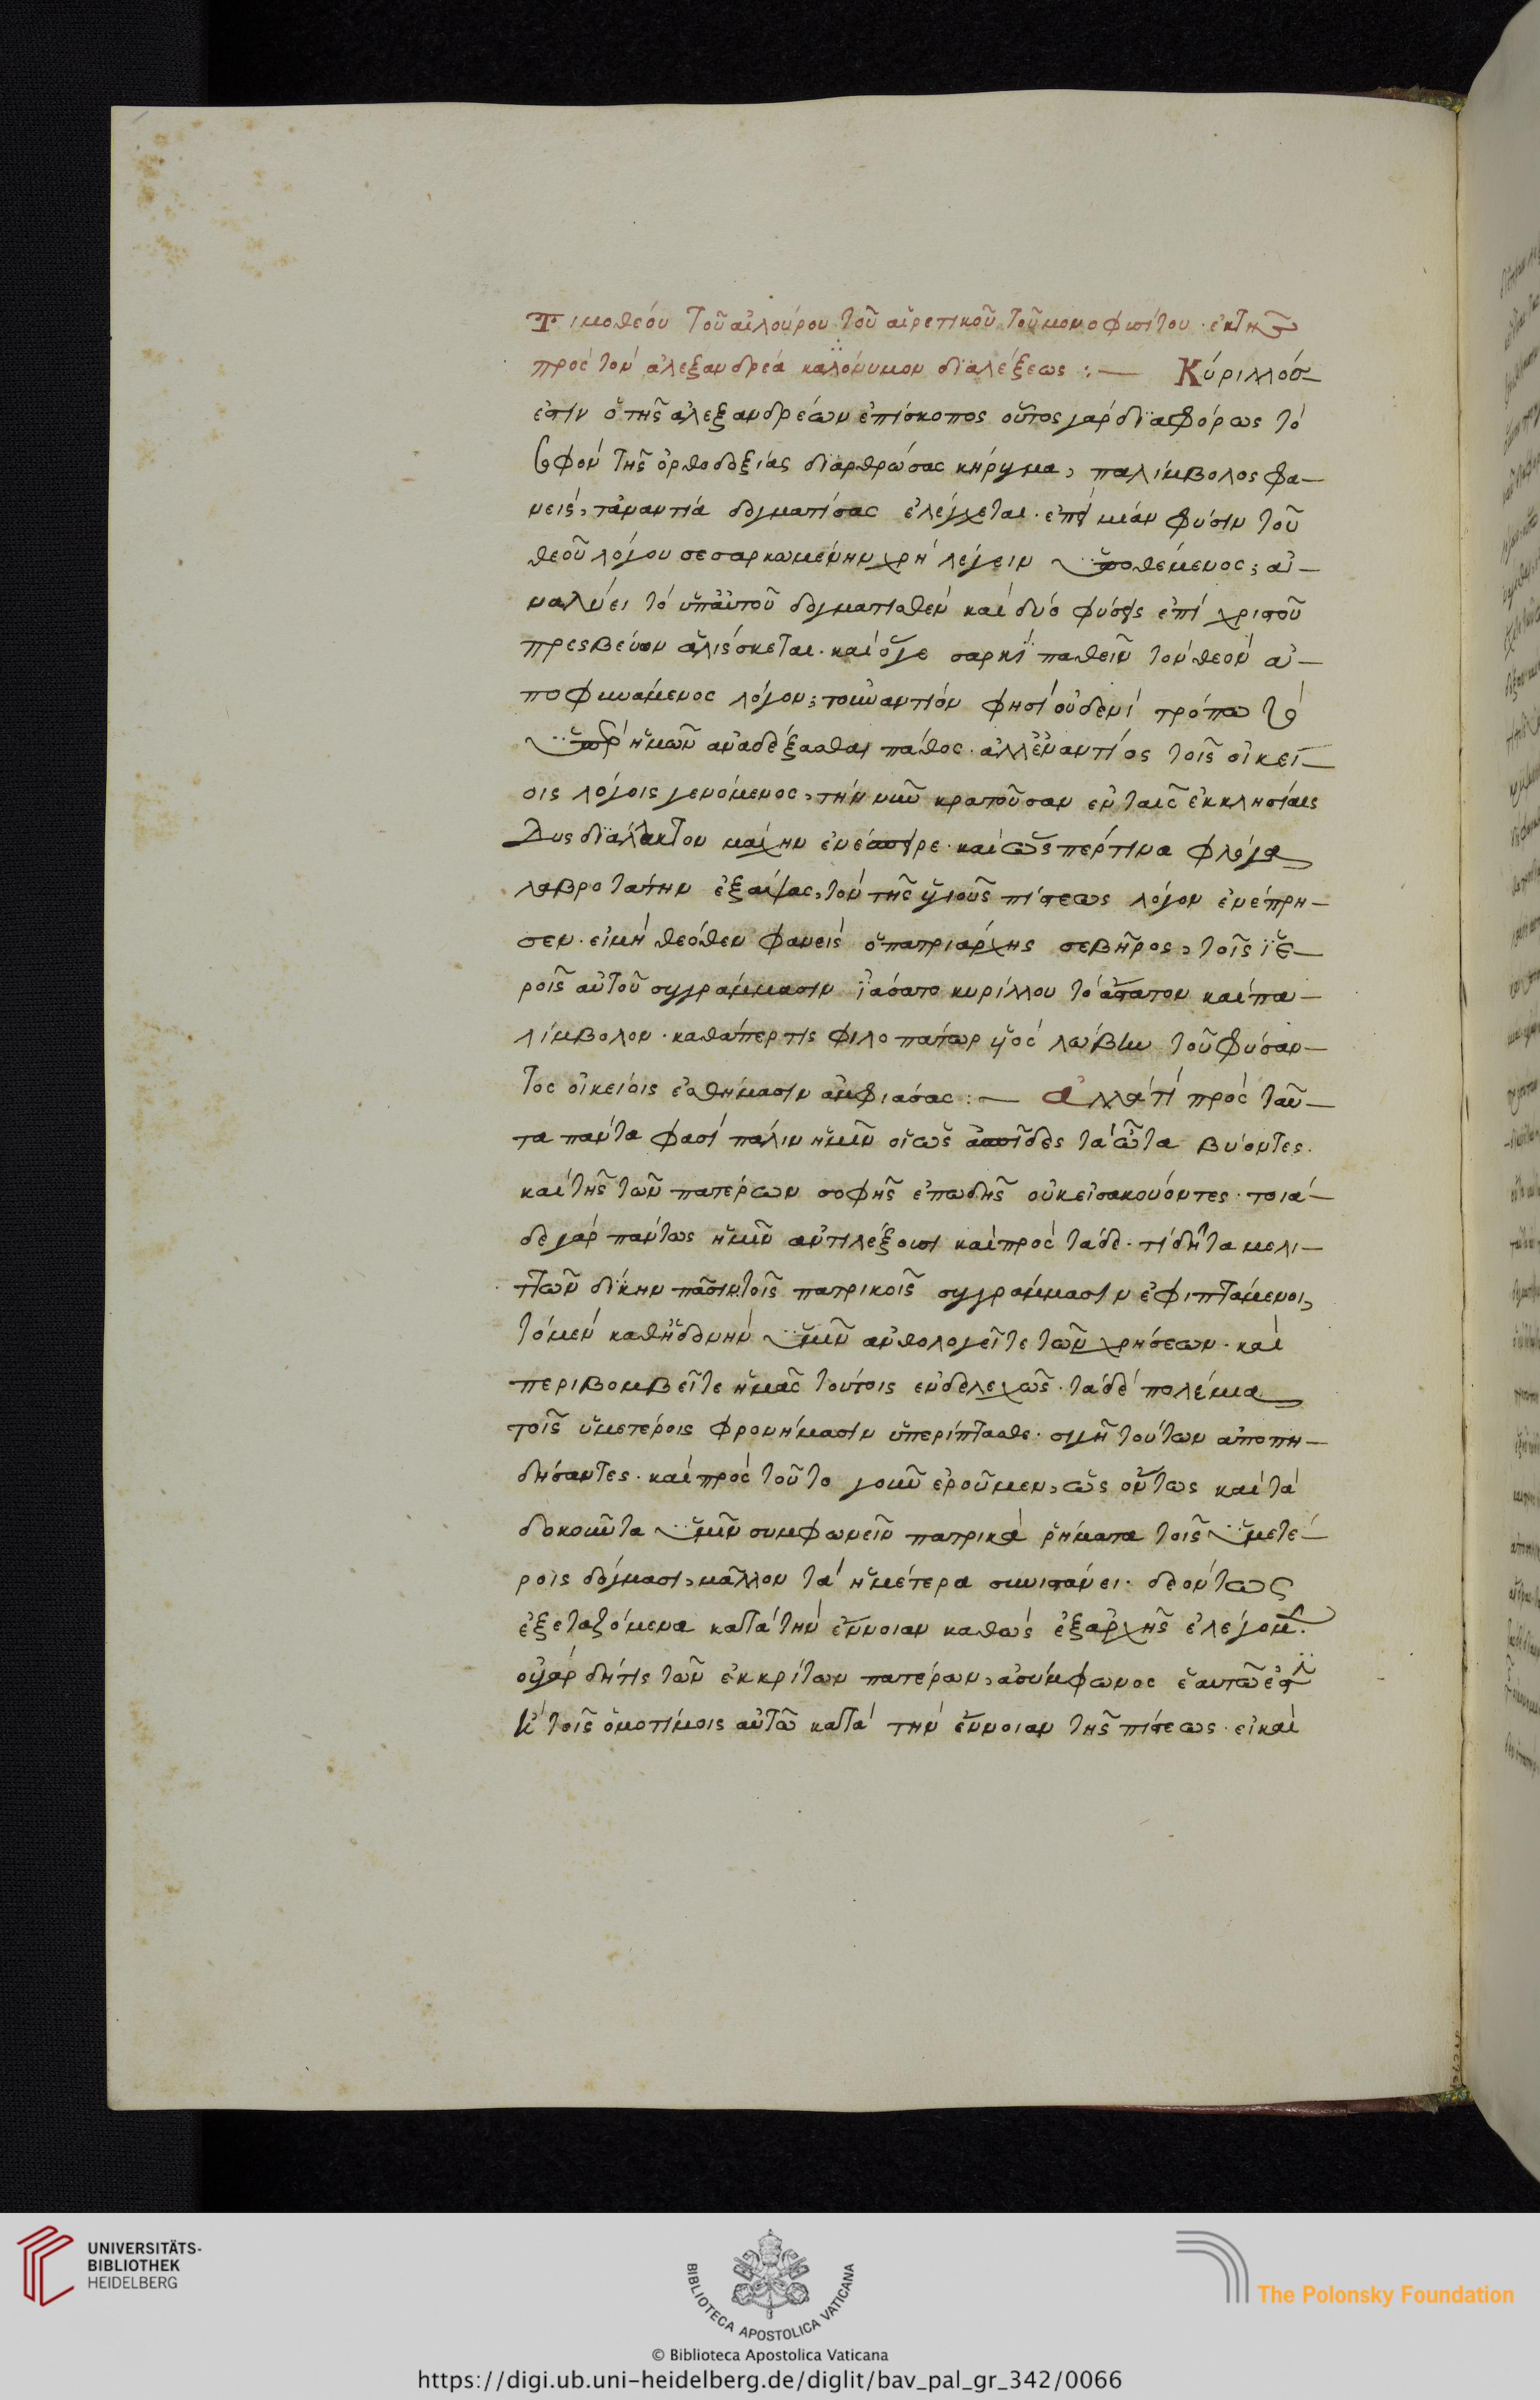 Τιμοθέου τοῦ αἰλούρου τοῦ αἱρετικοῦ τοῦ μονοφυσίτου · ἐκ τῆς
πρὸς τὸν ἀλεξανδρέα καλώνυμον διαλέξεως :— Κύριλλός
ἐστιν ὁ τῆς ἀλεξανδρέων ἐπίσκοπος οὗτος γὰρ διαφόρως τὸ
σοφὸν τῆς ὀρθοδοξίας διαρθρώσας κήρυγμα, παλίμβολος φα-
νεὶς, τἀναντία δογματίσας ἐλέγχεται · ἐπεὶ μίαν φύσιν τοῦ
θεοῦ λόγου σεσαρκωμένην χρὴ λέγειν ὑποθέμενος, ἀ-
ναλύει τὸ ὑπ' αὐτοῦ δογματισθὲν καὶ δύο φύσεις ἐπὶ χριστοῦ
πρεσβεύων ἁλίσκεται · καὶ ὅγε σαρκὶ παθεῖν τὸν θεὸν ἀ-
ποφηνάμενος λόγον, τοὐναντίον φησὶ οὐδενὶ τρόπω τὸ
ὑπὲρ ἡμῶν ἀναδέξασθαι πάθος · ἀλλ' ἐναντίος τοῖς οἰκεί-
οις λόγοις γενόμενος, τὴν νῦν κρατοῦσαν ἐν ταῖς ἐκκλησίαις
δυσδιάλλακτον μάχην ἐνέσπειρε · καὶ ὥσπέρ τινα φλόγα
λαβροτάτην ἐξάψας, τὸν τῆς ὑγιοῦς πίστεως λόγον ἐνέπρη-
σεν · εἰ μὴ θεόθεν φανεὶς ὁ πατριάρχης σεβῆρος, τοῖς ἱε-
ροῖς αὐτοῦ συγγράμμασιν ἰάσατο κυρίλλου τὸ ἄστατον καὶ πα-
λίμβολον · καθάπερ τις φιλοπάτωρ υἱὸς λώβην τοῦ φύσαν-
τος οἰκείοις ἐσθήμασιν ἀμφιάσας :— ἀλλὰ τί πρὸς ταῦ-
τα πάντα φασὶ πάλιν ἡμῖν οἱ ὡς ἀσπίδες τὰ ὦτα βύοντες ·
καὶ τῆς τῶν πατέρων σοφῆς ἐπωδῆς οὐκ εἰσακούοντες · τοιά-
δε γὰρ πάντως ἡμῖν ἀντιλέξουσι καὶ πρὸς τάδε · τί δῆτα μελι-
ττῶν δίκην πᾶσιν τοῖς πατρικοῖς συγγράμμασιν ἐφιπτάμενοι,
τὸ μὲν καθ' ἡδονὴν ὑμῖν ἀνθολογεῖτε τῶν χρήσεων · καὶ
περιβομβεῖτε ἡμᾶς τούτοις ἐνδελεχῶς · τὰ δὲ πολέμια
τοῖς ὑμετέροις φρονήμασιν ὑπερίπτασθε · σιγῆ τούτων ἀποπη-
δήσαντες · καὶ πρὸς τοῦτο γοῦν ἐροῦμεν, ὡς ὄντως καὶ τὰ
δοκοῦντα ὑμῖν συμφωνεῖν πατρικὰ ῥήματα τοῖς ὑμετέ-
ροις δόγμασι, μᾶλλον τὰ ἡμέτερα συνιστάνει · δεόντως
ἐξεταζόμενα κατὰ τὴν ἔννοιαν καθὼς ἐξαρχῆς ἐλέγομεν.
οὐ γὰρ δήτις τῶν ἐκκρίτων πατέρων, ἀσύμφωνος ἑαυτῶ ἐστὶ
καὶ τοῖς ὁμοτίμοις αὐτῶ κατὰ τὴν ἔννοιαν τῆς πίστεως · εἰ καὶ
UNIVERSITÄTS-
BIBLIOTHEK
HEIDELBERG
BIBLIOTECA APOSTOLICA VATICANA
The Polonsky Foundation
© Biblioteca Apostolica Vaticana
https://digi.ub.uni-heidelberg.de/diglit/bav_pal_gr_342/0066